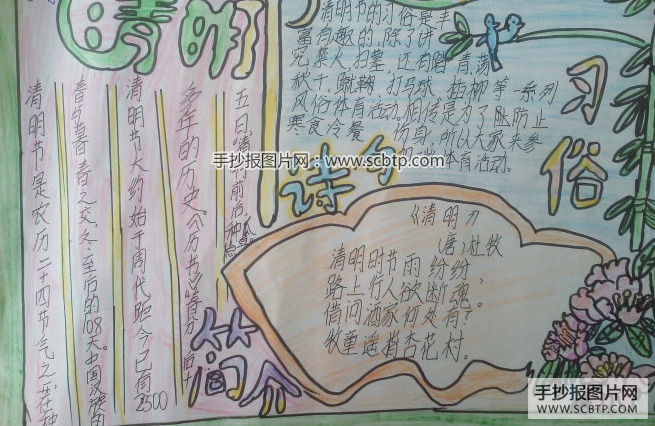 清明
清明节的习俗是丰
富有趣的,除了讲
究禁人、扫墓,还有踏青、荡
秋千、蹴鞠、打马球、插柳等一系列
风俗体育活动。相传是为了防止
寒食冷餐 伤身,所以大家来参
体育活动。
习俗
清明节是农历二十四节气之一,在种
春与暮春之交,冬至后的108天。中国汉族的
清明节大约始于周代,距今已有2500
多年的历史。《历书》:春分后十
五日清明前后,种
简介
手抄报图片网:www.scbtp.com
诗句
《清明》
(唐)杜牧
清明时节雨纷纷,
路上行人欲断魂。
借问酒家何处有?
牧童遥指杏花村。
手抄报图片网
WWW.SCBTP.COM